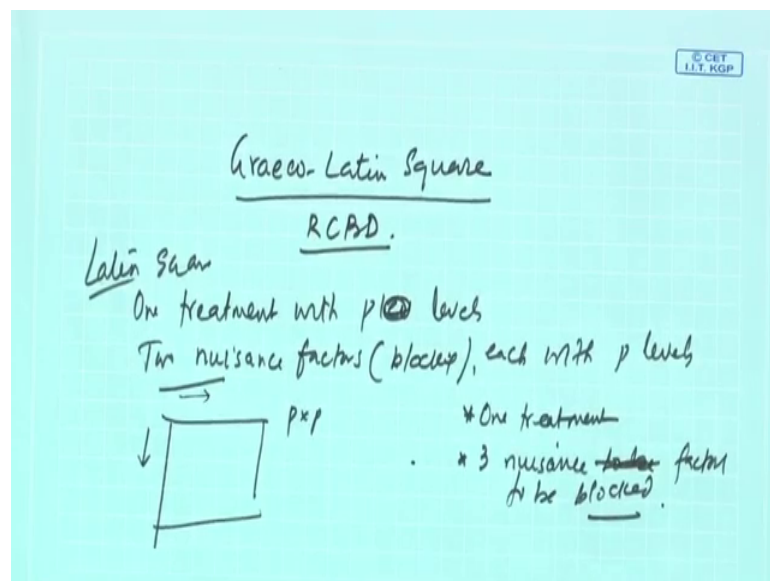 © CET
I.I.T. KGP
Graeco-Latin Square
RCBD.
Latin
One treatment with p levels
Two nuisance factors (blocks), each with p levels
p×p
* One treatment
* 3 nuisance factors
to be blocked.